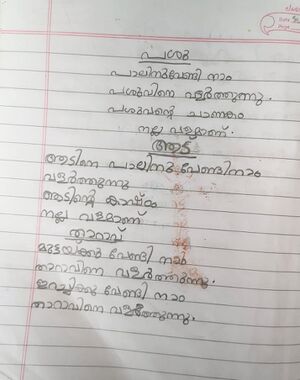 പശു
പാലിനുവേണ്ടി നാം
പശുവിനെ വളർത്തുന്നു.
പശുവന്റെ ചാണകം
നല്ല വളമാണ്.
ആട്
ആടിനെ പാലിനു വേണ്ടിനാം
വളർത്തുന്നു
ആടിന്റെ കാഷ്ഠം
നല്ല വളമാണ്
താറാവ്
മുട്ടയ്ക്കു വേണ്ടി നാം
താറാവിനെ വളർത്തുന്നു.
ഇറച്ചിക്കു വേണ്ടി നാം
താറാവിനെ വളർത്തുന്നു.